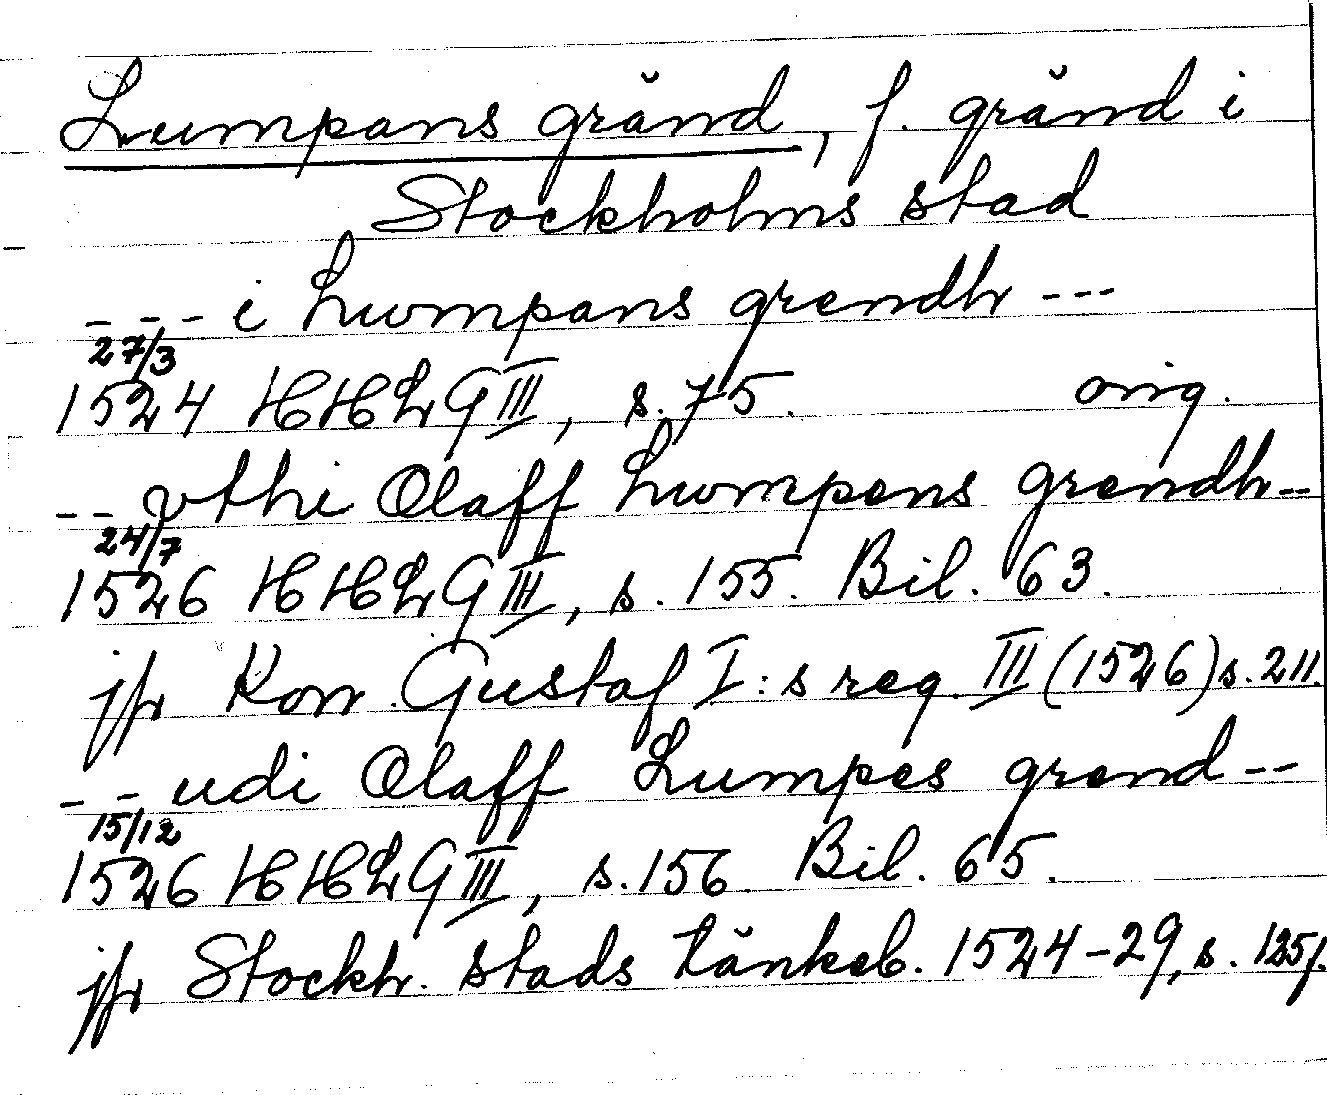 Lumpans gränd, f. gränd i
Stockholms stad
--- i Lwmpans grendh ---
27/3
1524 HHLG III, s. 75. orig.
-- vthi Olaff Lwmpens grendh --
24/7
1526 HHLG III, s. 155. Bil. 63.
jfr Kon. Gustaf I:s reg. III (1526) s. 211.
-- udi Olaff Lumpes grend --
15/12
1526 HHLG III, s. 156. Bil. 65.
jfr Stockh. stads tänkeb. 1524-29, s. 125f.